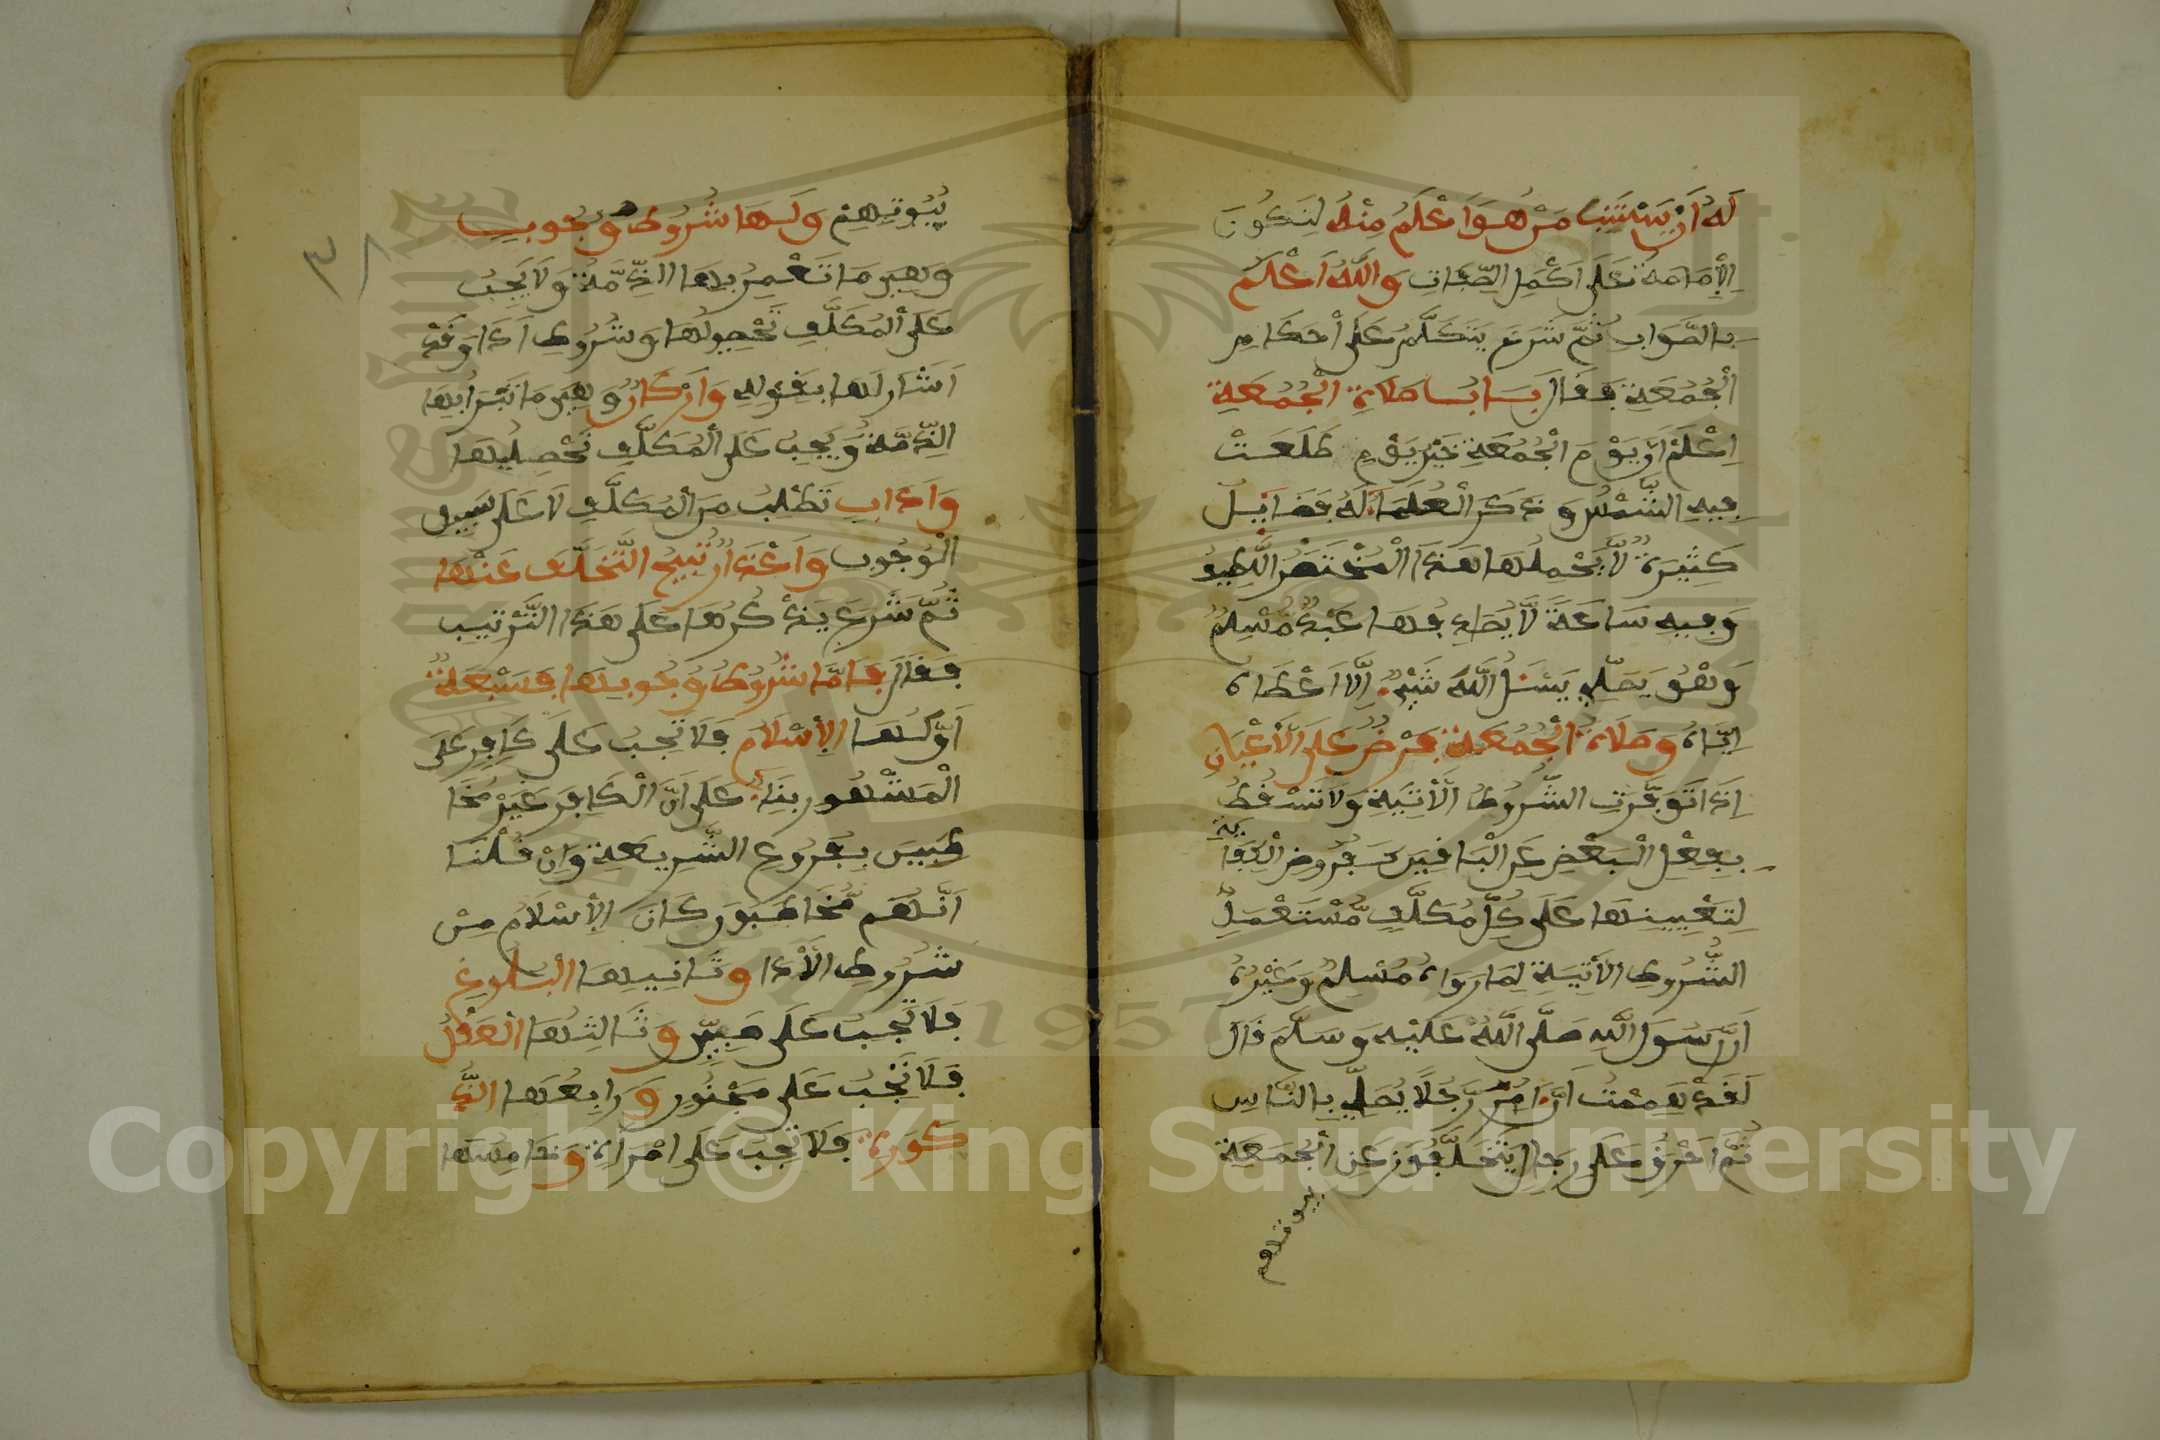 لَهُ اَنْ يَسْتَنِيبَ مَنْ هُوَ اَعْلَمُ مِنْهُ لِتَكُونَ
الْإِمَامَةُ عَلَى اَكْمَلِ الصِّفَاتِ وَاللَّهُ اَعْلَمُ
بِالصَّوَابِ ثُمَّ شَرَعَ يَتَكَلَّمُ عَلَى أَحْكَامِ
الْجُمُعَةِ فَقَالَ بَابُ صَلَاةِ الْجُمُعَةِ
اِعْلَمْ اَنَّ يَوْمَ الْجُمُعَةِ خَيْرُ يَوْمٍ طَلَعَتْ
فِيهِ الشَّمْسُ وَذَكَرَ الْعُلَمَاءُ لَهُ فَضَائِلَ
كَثِيرَةً لَا يَحْمِلُهَا هَذَا الْمُخْتَصَرُ اللَّطِيفُ
وَفِيهِ سَاعَةٌ لَا يُصَادِفُهَا عَبْدٌ مُسْلِمٌ
وَهُوَ يُصَلِّي يَسْئَلُ اللَّهَ شَيْئًا اِلَّا اَعْطَاهُ
اِيَّاهُ وَصَلَاةُ الْجُمُعَةِ فَرْضٌ عَلَى الْأَعْيَانِ
اِذَا تَوَفَّرَتِ الشُّرُوطُ الْأَتِيَةُ وَلَا تَسْقُطُ
بِفِعْلِ الْبَعْضِ عَنِ الْبَاقِينَ كَفُرُوضِ الْكِفَايَةِ
لِتَعْيِينِهَا عَلَى كُلِّ مُكَلَّفٍ مُسْتَعْمِلٍ
الشُّرُوطِ الْأَتِيَةِ لِمَا رَوَاهُ مُسْلِمٌ وَغَيْرُهُ
اَنَّ رَسُولَ اللَّهِ صَلَّى اللَّهُ عَلَيْهِ وَسَلَّمَ قَالَ
لَقَدْ هَمَمْتُ اَنْ اٰمُرَ رَجُلًا يُصَلِّي بِالنَّاسِ
ثُمَّ اُحَرِّقُ عَلَى رِجَالٍ يَتَخَلَّفُونَ عَنِ الْجُمُعَةِ
بيوتهم
بُيُوتَهُمْ وَلَهَا شُرُوطُ وُجُوبٍ
وَهِيَ مَا تَعْمُرُ بِهَا الذِّمَّةُ وَلَا يَجِبُ
عَلَى الْمُكَلَّفِ تَحْصِيلُهَا وَشُرُوطُ اَدَا وَقَدْ
اَشَارَ لَهَا بِقَوْلِهِ وَاَرْكَانٌ وَهِيَ مَا تَبْرَأُ بِهَا
الذِّمَّةُ وَيَجِبُ عَلَى الْمُكَلَّفِ تَحْصِيلُهَا
وَاٰدَابٌ تُطْلَبُ مِنَ الْمُكَلَّفِ لَا عَلَى سَبِيلِ
الْوُجُوبِ وَاَعْذَارٌ تُبِيحُ التَّخَلُّفَ عَنْهَا
ثُمَّ شَرَعَ يَذْكُرُهَا عَلَى هَذَا التَّرْتِيبِ
فَقَالَ فَاَمَّا شُرُوطُ وُجُوبِهَا فَسَبْعَةٌ
اَوَّلُهَا الْإِسْلَامُ فَلَا تَجِبُ عَلَى كَافِرٍ عَلَى
الْمَشْهُورِ بِنَاءً عَلَى اَنَّ الْكَافِرَ غَيْرُ مُخَا
طَبِينَ بِفُرُوعِ الشَّرِيعَةِ وَاِنْ قُلْنَا
اَنَّهُمْ مُخَاطَبُونَ كَانَ الْإِسْلَامُ مِنْ
شُرُوطِ الْأَدَا وَثَانِيهَا الْبُلُوغُ
فَلَا تَجِبُ عَلَى صَبِيٍّ وَثَالِثُهَا الْعَقْلُ
فَلَا تَجِبُ عَلَى مَجْنُونٍ وَرَابِعُهَا الذُّ
كُورَةُ فَلَا تَجِبُ عَلَى امْرَأَةٍ وَخَامِسُهَا
Copyright © King Saud University
1957